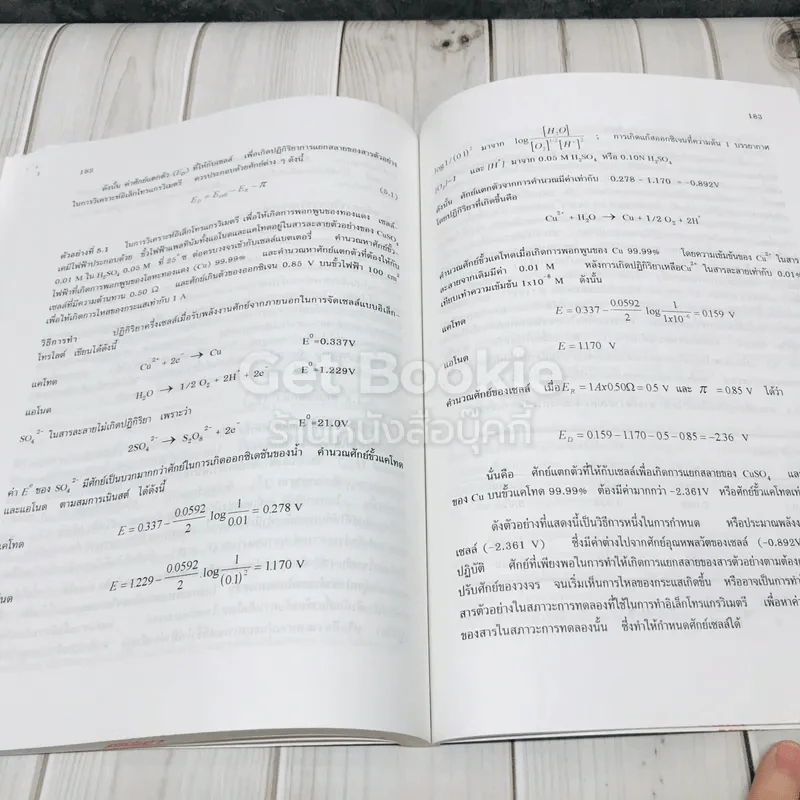 182
ดังนั้น ค่าศักย์แตกตัว (E_D) ที่ให้กับเซลล์ เพื่อเกิดปฏิกิริยาการแยกสลายของสารตัวอย่าง
ในการวิเคราะห์อิเล็กโทรแกรวิเมตรี ควรประกอบด้วยศักย์ต่าง ๆ ดังนี้
E_D = E_cell − E_R − π (5.1)
ตัวอย่างที่ 5.1 ในการวิเคราะห์อิเล็กโทรแกรวิเมตรี เพื่อให้เกิดการพอกพูนของทองแดง เซลล์
เคมีไฟฟ้าประกอบด้วย ขั้วไฟฟ้าแพลทินัมทั้งแอโนดและแคโทดอยู่ในสารละลายตัวอย่างของ CuSO₄
0.01 M ใน H₂SO₄ 0.05 M ที่ 25° ซ ต่อครบวงจรเข้ากับเซลล์แบตเตอรี่ คำนวณหาศักย์ขั้ว
ไฟฟ้าที่เกิดการพอกพูนของโลหะทองแดง (Cu) 99.99% และคำนวณหาศักย์แตกตัวที่ต้องให้กับ
เซลล์ที่มีความต้านทาน 0.50 Ω และศักย์เกินตัวของออกซิเจน 0.85 V บนขั้วไฟฟ้า 100 cm²
เพื่อให้เกิดการไหลของกระแสเท่ากับ 1 A
วิธีการทำ ปฏิกิริยาครึ่งเซลล์เมื่อรับพลังงานศักย์จากภายนอกในการจัดเซลล์แบบอิเล็ก-
โทรไลต์ เขียนได้ดังนี้
Cu²⁺ + 2e⁻ → Cu E⁰=0.337V
แคโทด
H₂O → 1/2 O₂ + 2H⁺ + 2e⁻ E⁰=1.229V
แอโนด
SO₄²⁻ ในสารละลายไม่เกิดปฏิกิริยา เพราะว่า
2SO₄²⁻ → S₂O₈²⁻ + 2e⁻ E⁰=21.0V
ค่า E⁰ ของ SO₄²⁻ มีศักย์เป็นบวกมากกว่าศักย์ในการเกิดออกซิเดชันของน้ำ คำนวณศักย์ขั้วแคโทด
และแอโนด ตามสมการเนินสต์ ได้ดังนี้
แคโทด
E = 0.337 − 0.0592/2 log 1/0.01 = 0.278 V
E = 1.229 − 0.0592/2 log 1/(0.1)² = 1.170 V
183
log 1/(0.1)² มาจาก log [H₂O]/[O₂]^1/2[H⁺]² ; การเกิดแก๊สออกซิเจนที่ความดัน 1 บรรยากาศ
[O₂]=1 และ [H⁺] มาจาก 0.05 M H₂SO₄ หรือ 0.10N H₂SO₄
ดังนั้น ศักย์แตกตัวจากการคำนวณมีค่าเท่ากับ 0.278 − 1.170 = −0.892V
โดยปฏิกิริยาที่เกิดขึ้นคือ
Cu²⁺ + H₂O → Cu + 1/2 O₂ + 2H⁺
คำนวณศักย์ขั้วแคโทดเมื่อเกิดการพอกพูนของ Cu 99.99% โดยความเข้มข้นของ Cu²⁺ ในสาร
ละลายจากเดิมมีค่า 0.01 M หลังการเกิดปฏิกิริยาเหลือCu²⁺ ในสารละลายเท่ากับ 0.01%
เทียบเท่าความเข้มข้น 1x10⁻⁶ M ดังนั้น
E = 0.337 − 0.0592/2 log 1/1x10⁻⁶ = 0.159 V
แคโทด
E = 1.170 V
แอโนด
คำนวณศักย์ของเซลล์ เมื่อ E_R = 1Ax0.50Ω = 0.5 V และ π = 0.85 V ได้ว่า
E_D = 0.159−1.170−0.5−0.85 = −2.36 V
นั่นคือ ศักย์แตกตัวที่ให้กับเซลล์เพื่อเกิดการแยกสลายของ CuSO₄
ของ Cu บนขั้วแคโทด 99.99% ต้องมีค่ามากกว่า −2.361V หรือศักย์ขั้วแคโทด
ดังตัวอย่างที่แสดงนี้เป็นวิธีการหนึ่งในการกำหนด หรือประมาณ
เซลล์ (−2.361 V) ซึ่งมีค่าต่างไปจากศักย์อุณหพลวัตของเซลล์ (−0.892V)
ปฏิบัติ ศักย์ที่เพียงพอในการทำให้เกิดการแยกสลายของสารตัวอย่างตามต้อง
ปรับศักย์ของวงจร จนเริ่มเห็นการไหลของกระแสเกิดขึ้น หรืออาจเป็นการทำ
สารตัวอย่างในสภาวะการทดลองที่ใช้ในการทำอิเล็กโทรแกรวิเมตรี เพื่อหาค่า
ของสารในสภาวะการทดลองนั้น ซึ่งทำให้กำหนดศักย์เซลล์ได้
Get Bookie
ร้านหนังสือบุ๊คกี้